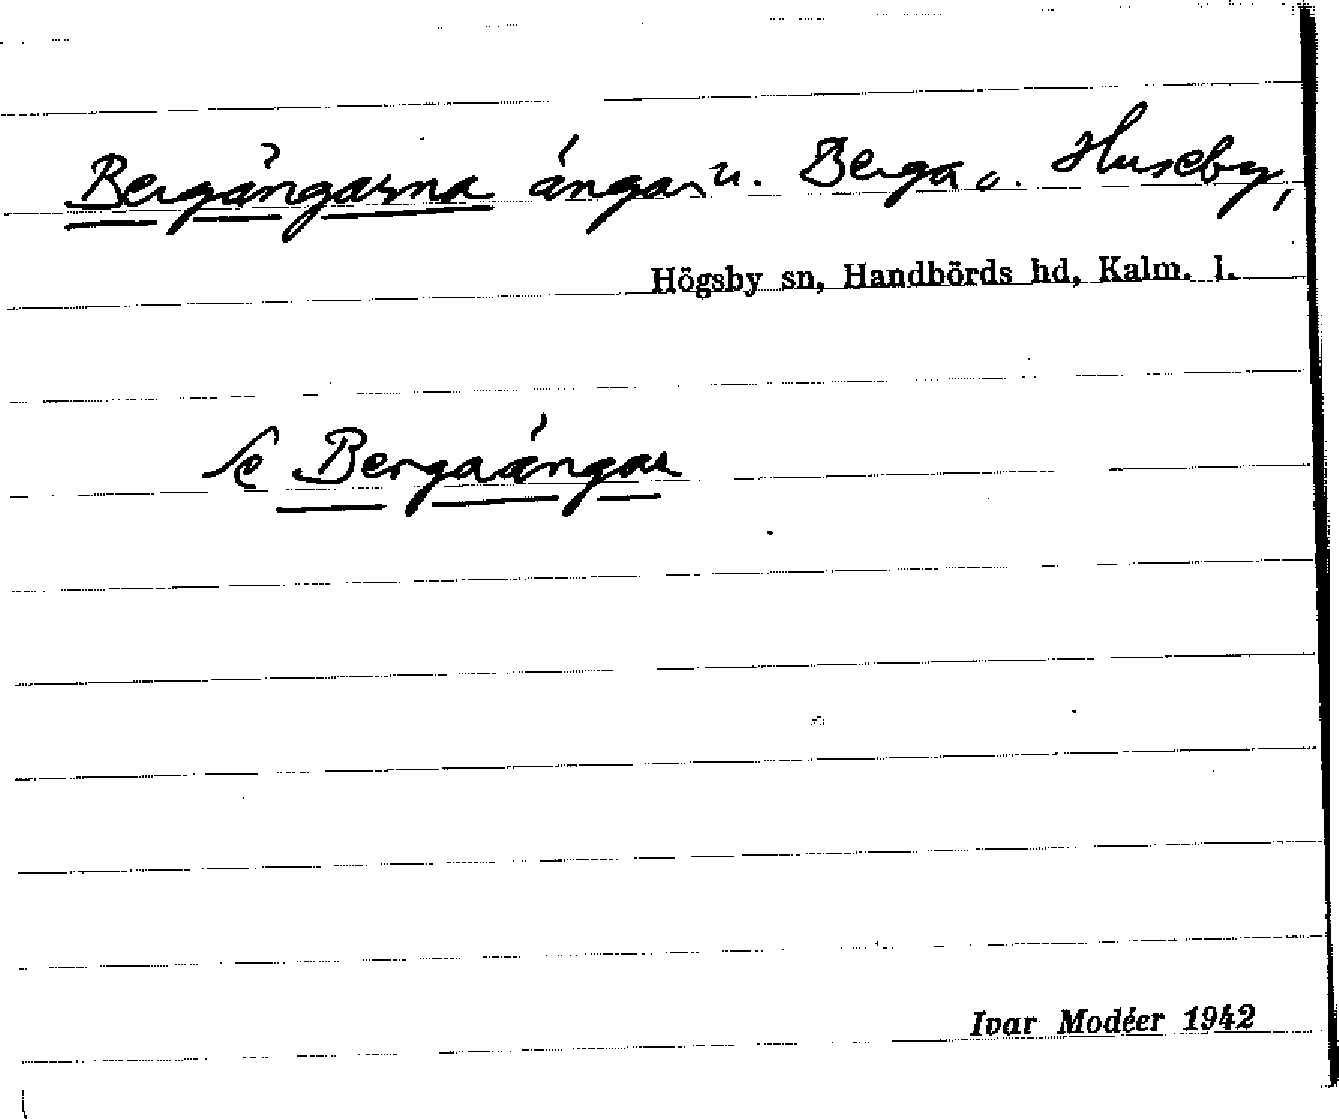 Bergängarna ängar u. Berga o. Huseby,
Högsby sn, Handbörds hd, Kalm. l.
Se Bergaängar
Ivar Modéer 1942